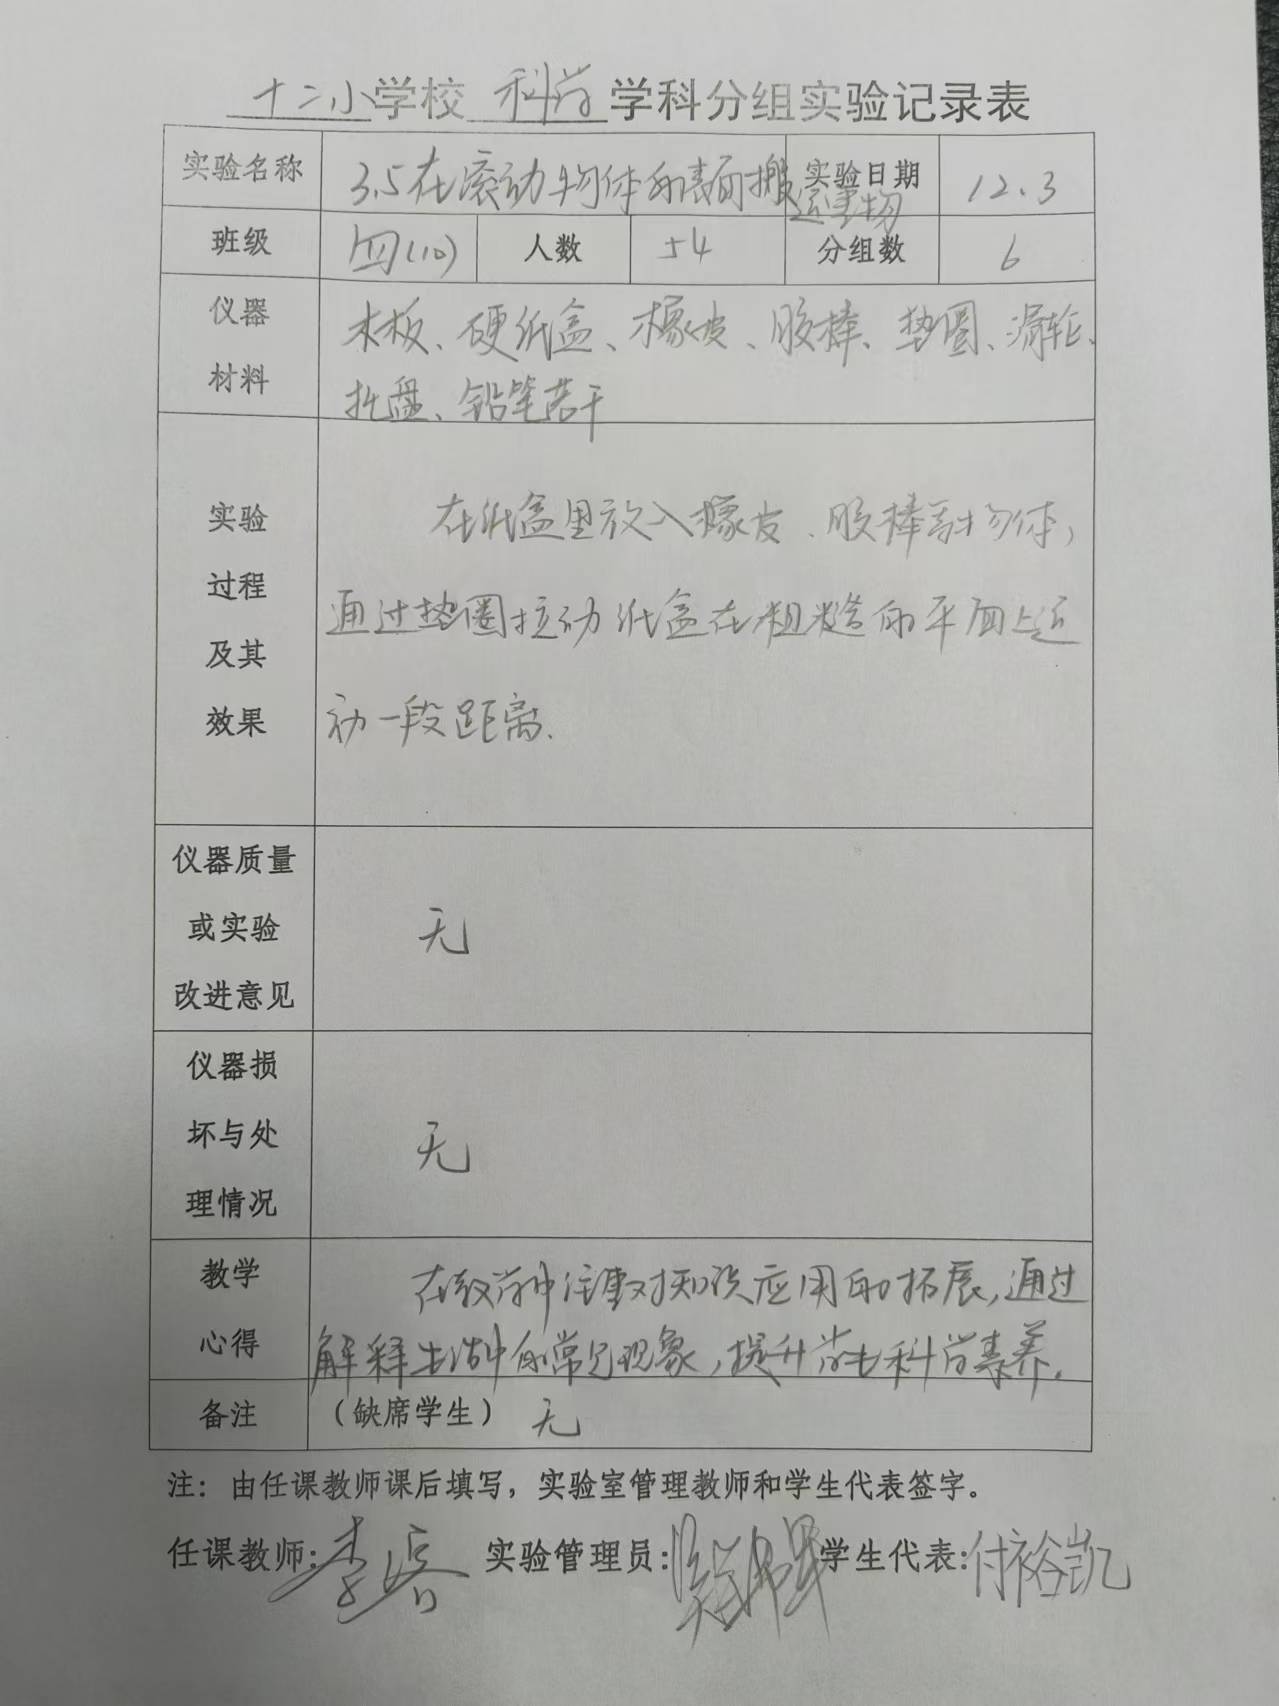 十二小学校 科学 学科分组实验记录表
实验名称 3.5在滚动物体的表面搬运重物 实验日期 12.3
班级 四(10) 人数 54 分组数 6
仪器 木板、硬纸盒、橡皮、胶棒、垫圈、滑轮、
材料 托盘、铅笔若干
实验 在纸盒里放入橡皮、胶棒等物体,
过程 通过垫圈拉动纸盒在粗糙的平面上运
及其
效果 动一段距离.
仪器质量
或实验 无
改进意见
仪器损
坏与处 无
理情况
教学 在教学中注重对知识应用的拓展,通过
心得 解释生活中的常见现象,提升学生科学素养.
备注 (缺席学生) 无
注:由任课教师课后填写,实验室管理教师和学生代表签字。
任课教师: 实验管理员: 学生代表:付裕凯